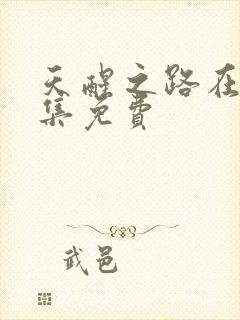 天醒之路在
集免费
武邑